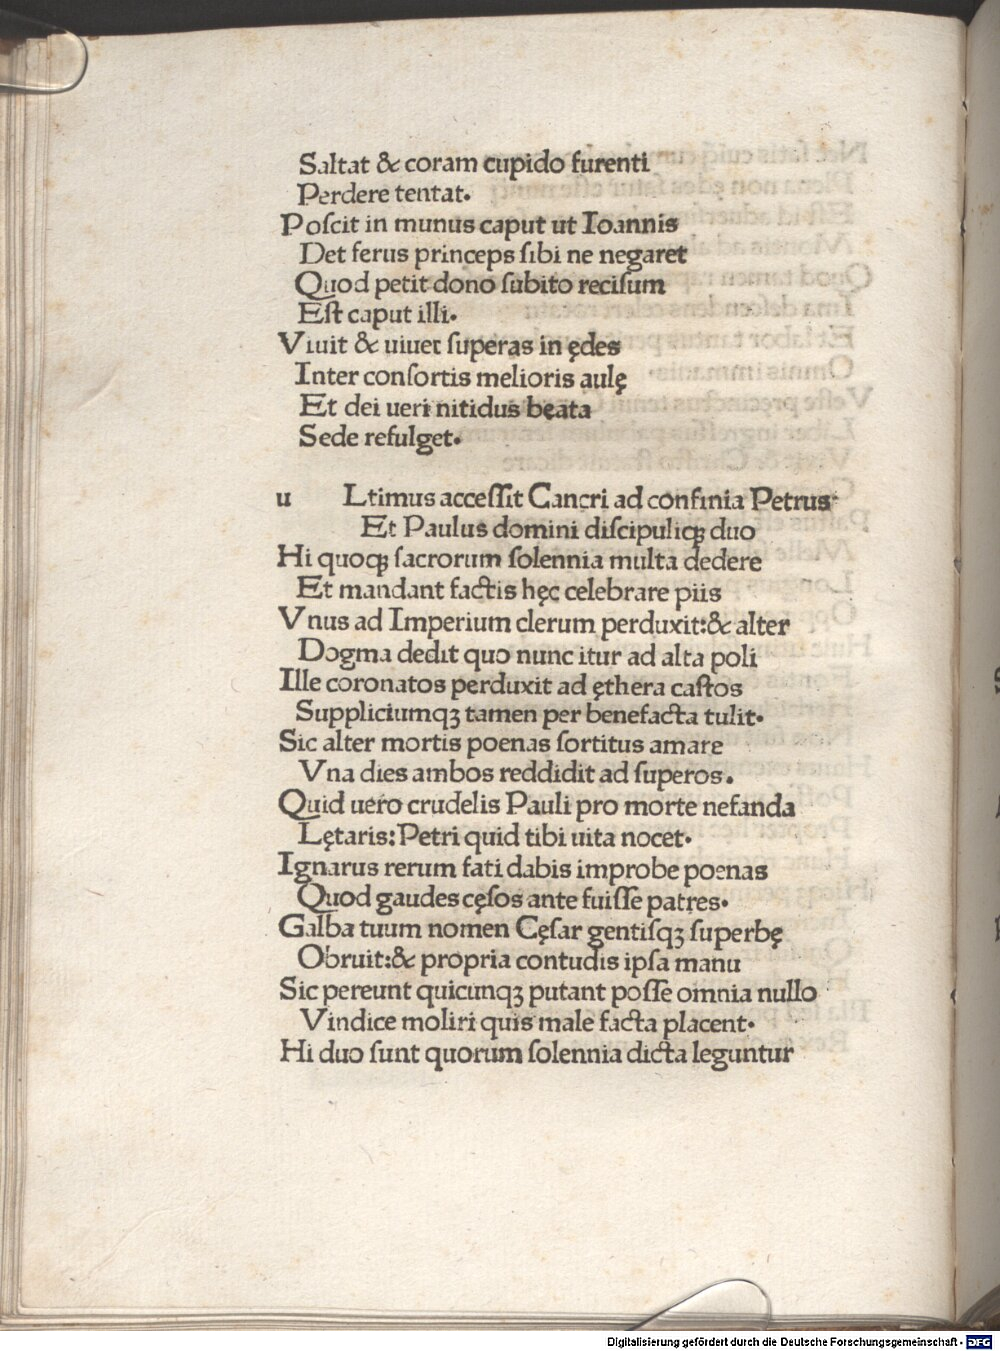 Saltat & coram cupido furenti
Perdere tentat.
Poſcit in munus caput ut Ioannis
Det ferus princeps ſibi ne negaret
Quod petit dono ſubito reciſum
Eſt caput illi.
Viuit & uiuet ſuperas in ędes
Inter conſortis melioris aulę
Et dei ueri nitidus beata
Sede refulget.
u Ltimus acceſſit Cancri ad confinia Petrus
Et Paulus domini diſcipuliqꝫ duo
Hi quoqꝫ ſacrorum ſolennia multa dedere
Et mandant factis hęc celebrare piis
Vnus ad Imperium clerum perduxit:& alter
Dogma dedit quo nunc itur ad alta poli
Ille coronatos perduxit ad ęthera caſtos
Suppliciumqꝫ tamen per benefacta tulit.
Sic alter mortis poenas ſortitus amare
Vna dies ambos reddidit ad ſuperos.
Quid uero crudelis Pauli pro morte nefanda
Lętaris: Petri quid tibi uita nocet.
Ignarus rerum fati dabis improbe poenas
Quod gaudes cęſos ante fuiſſe patres.
Galba tuum nomen Cęſar gentiſqꝫ ſuperbę
Obruit:& propria contudis ipſa manu
Sic pereunt quicunqꝫ putant poſſe omnia nullo
Vindice moliri quis male facta placent.
Hi duo ſunt quorum ſolennia dicta leguntur
Digitalisierung gefördert durch die Deutsche Forschungsgemeinschaft - DFG